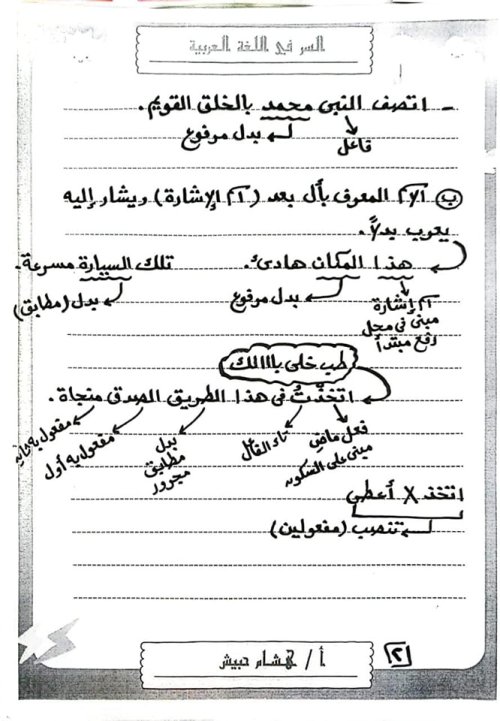 السر في اللغة العربية
- اتصف النبى محمد بالخلق القويم.
فاعل
بدل مرفوع
ب الاسم المعرف بأل بعد (اسم الإشارة) ويشار إليه
يعرب بدلاً.
هذا المكان هادئ. تلك السيارة مسرعة.
اسم إشارة
مبنى فى محل
رفع مبتدأ
بدل مرفوع
بدل (مطابق)
طب خلى باااالك
اتخذْتُ فى هذا الطريق الصدق منجاة.
فعل ماضٍ
مبنى على السكون
تاء الفاعل
بدل
مطابق
مجرور
مفعول به أول
مفعول به ثانٍ
اتخذ X أعطى
تنصب (مفعولين)
أ / هشام حبيش
٢